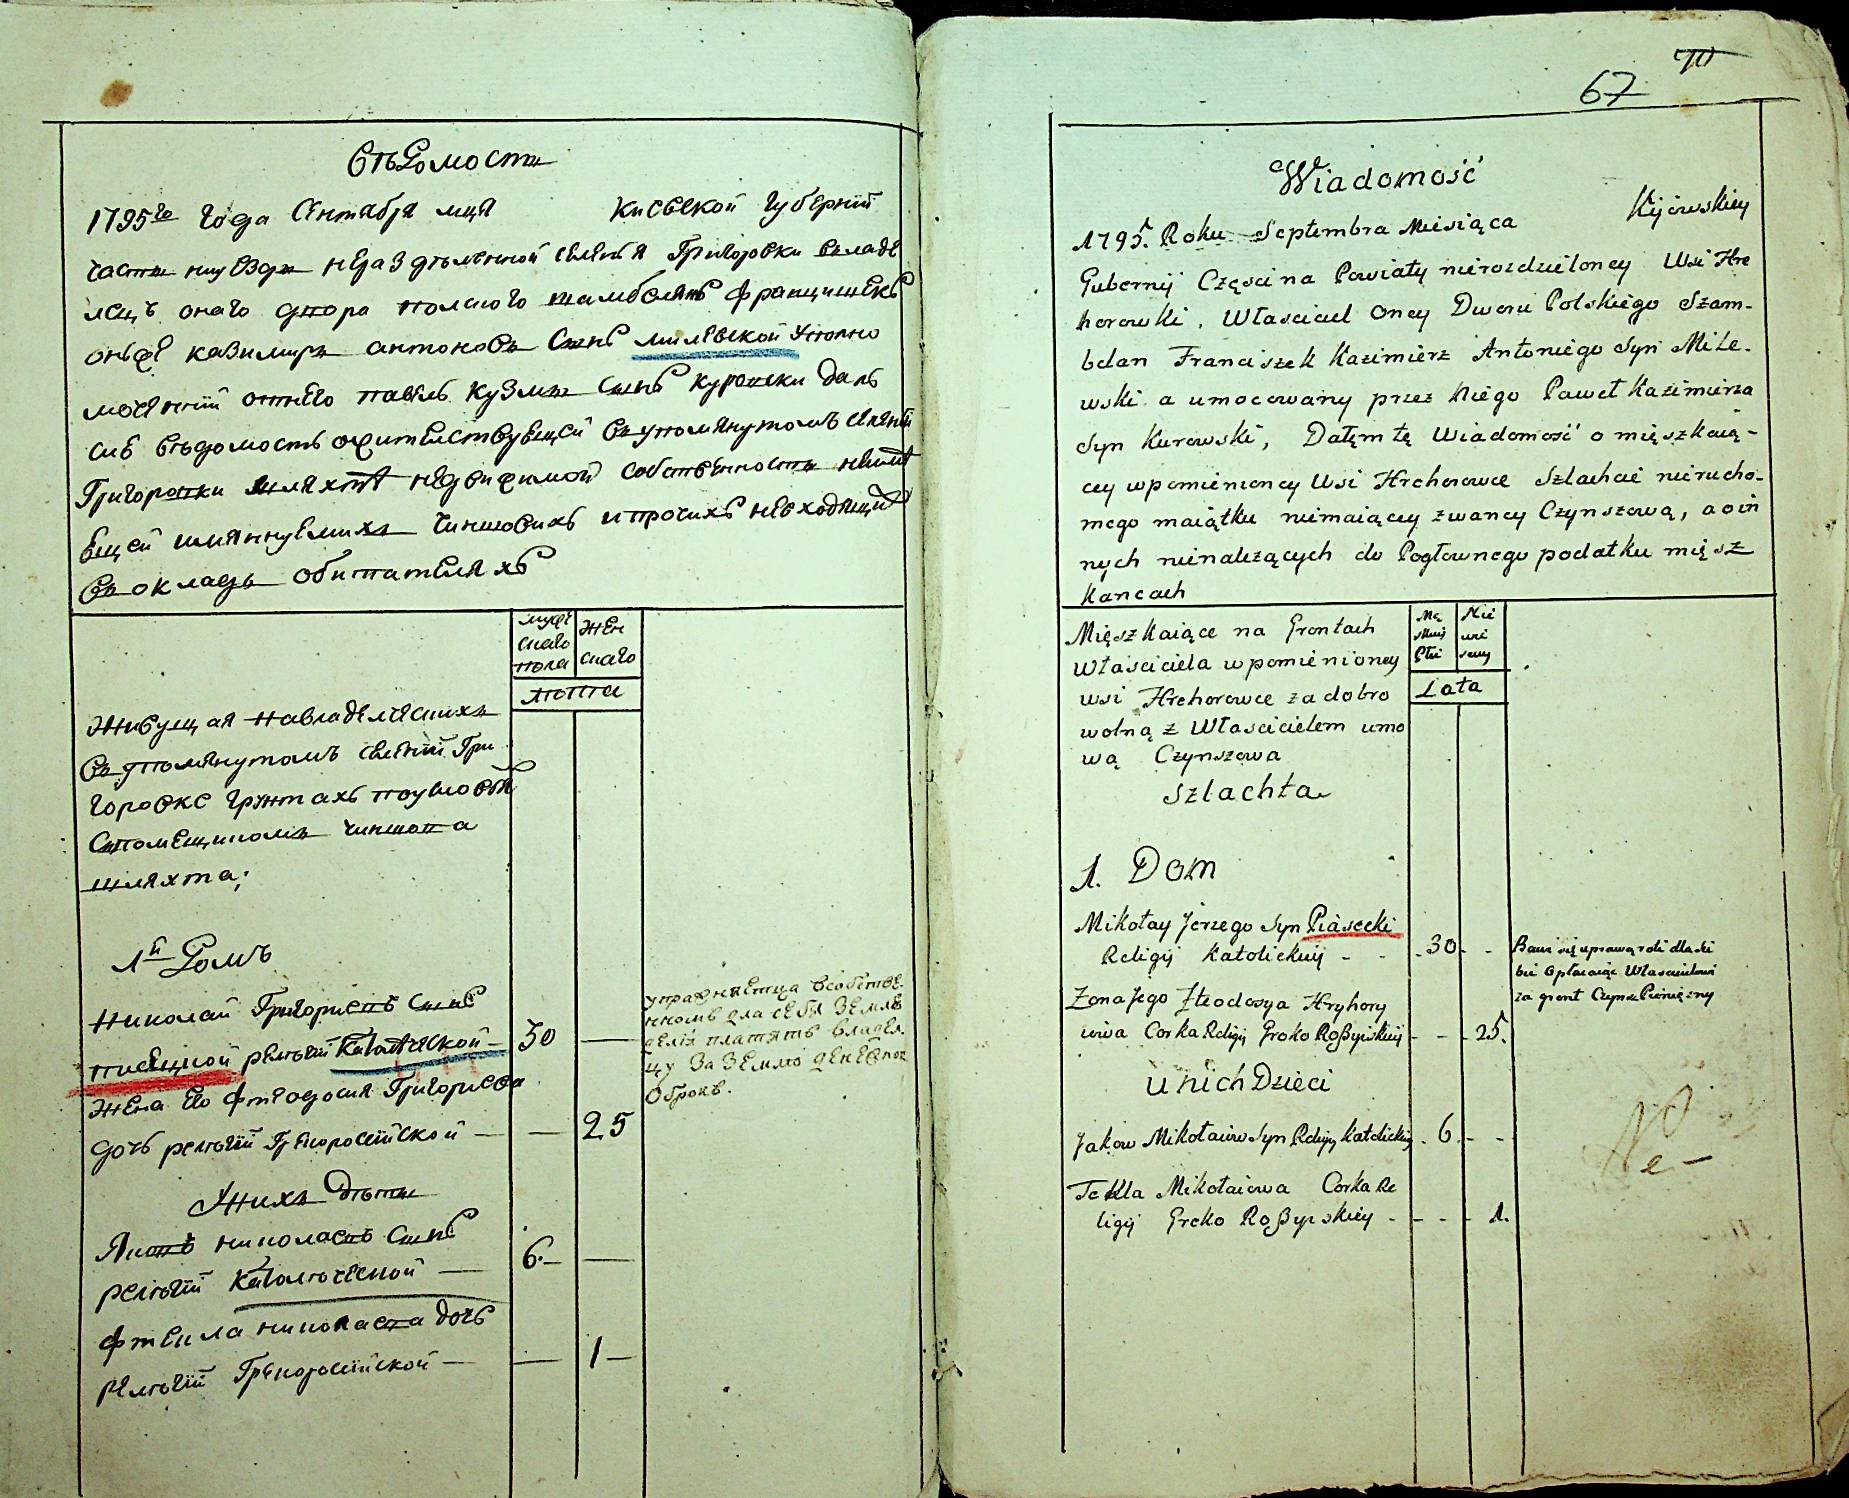 Вѣдомость
1795го года Сентября мця Киевской губернии
части на уезди неразделенной селения Григоровки владе
лецъ онаго двора полского шамбелянъ Францишекъ
онъ же казимиръ антоновъ сынъ милевской уполно
моченний отнего павелъ кузмы сынъ куровски далъ
сию вѣдомость ожителствующей въупомянутомъ селении
Григоровки шляхтѣ недвижимой собственности неиме
ющей имяннуемихъ чиншовихъ ипрочихъ невходящих
въокладъ обитателяхъ
муже
скаго
пола
жен
скаго
лѣта
Живущая навладелческихъ
въупомянутомъ селении Гри
горовке грунтахъ поусловѣи
спомещикомъ чиншова
шляхта;
1й Домъ
Николай Григориевъ сынъ
писецкой релѣгии католической 30 —
жена его Фтеодосия Григориева
дочь релѣгии Грекороссийской — — 25
упражняетца всобстве
нномъ для себя земле
делии платитъ владел
цу за землю денежной
оброкъ.
Унихъ дѣти
Яковъ николаевъ сынъ
релѣгии католической — 6.— —
Фтекла николаева дочь
релѣгии Грекороссийской — — 1 —
70
67
Wiadomość
1795. Roku Septembra Miesiąca Kijowskiey
Gubernij Częsci na Powiaty nierozdzieloney Wsi Hre
horowki. Właściciel Oney Dworu Polskiego Szam-
belan Franciszek Kazimierz Antoniego Syn Mile-
wski a umocowany przez niego Paweł Kazimierza
Syn Kurowski, Dałęm tę Wiadomość o mięszkaią-
cey wpomienioney Wsi Hrehorowce Szlachcie nierucho-
mego maiątku niemaiącey zwaney Czynszową, a o in
nych nienalezących do Pogłownego podatku mięsz
kancach
Mięszkaiące na Grontach
Własciciela wpomienioney
wsi Hrehorowce za dobro
wolną z Włascicielem umo
wą Czynszowa
Szlachta
Lata
1. Dom
Mikołay Jerzego Syn Piasecki
Religij Katolickiey - - 30 - -
Bawi się uprawą roli dla sie
bie Opłacaiąc Włascicielowi
za gront Czynsz Pieniężny
Zona Jego Fteodosya Hryhory
iowa Corka Religij Greko Roßyiskiey - - 25.
U nich Dzieci
Jakow Mikołaiow Syn Religij Katolickiey . 6. - -
Tekla Mikołaiowa Corka Re
ligij Greko Roßyiskiey - - - 1.